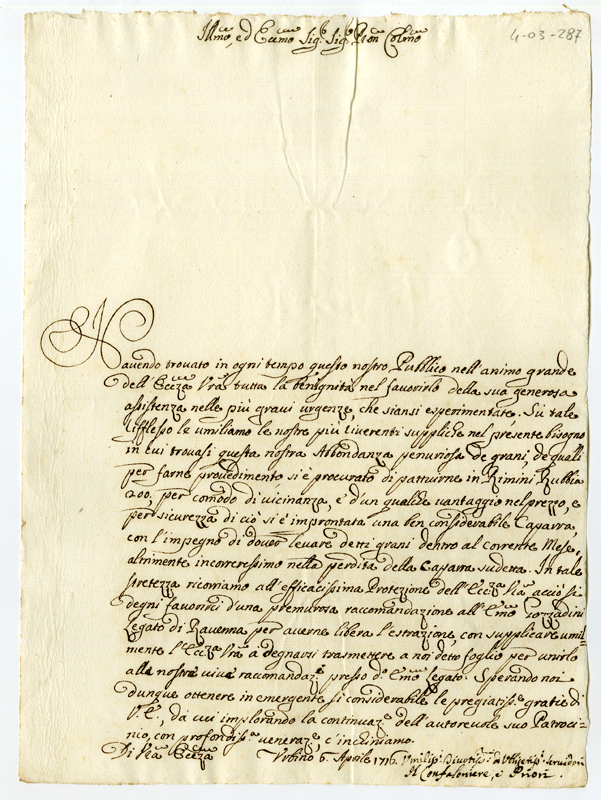 Illmo, ed Eccmo Sigr Sigr Pron Colmo
4-03-287
Havendo trovato in ogni tempo questo nostro Publico nell'animo grande
dell'Eccza Vra tutta la benignità nel favorirlo della sua generosa
assistenza nelle più gravi urgenze, che siansi esperimentate. Sù tale
riflesso le umiliamo le nostre più riverenti suppliche nel presente bisogno
in cui trovasi questa nostra Abbondanza penuriosa de grani, de quali
per farne provedimento si è procurato di pattuirne in Rimini Rubbia
200, per comodo di vicinanza, e d'un qualche vantaggio nel prezzo, e
per sicurezza di ciò si è improntata una ben considerabile Caparra,
con l'impegno di dover levare detti grani dentro al corrente Mese,
altrimente incorreressimo nella perdita della Caparra sudetta. In tale
stretezza ricorriamo all'efficacissima Protezione dell'Eccza Vra acciò si
degni favorirci d'una premurosa raccomandazione all'Emo Gozzadini
Legato di Ravenna per averne libera l'estrazione, con supplicare umil=
mente l'Eccza Vra a degnarsi trasmettere a noi detto foglio per unirlo
alle nostre vive racomandaze presso do Emo Legato. Sperando noi
dunque ottenere in emergente si considerabile le pregiatisse gratie di
V.E., da cui implorando la continuaze dell'autorevole suo Patroci=
nio, con profondissa veneraze, c'inchiniamo.
Di Vra Eccza Urbino 6. Aprile 1716. Umilissi Divotissi ed Obligatissi servidori
Il Confaloniere, e Priori.